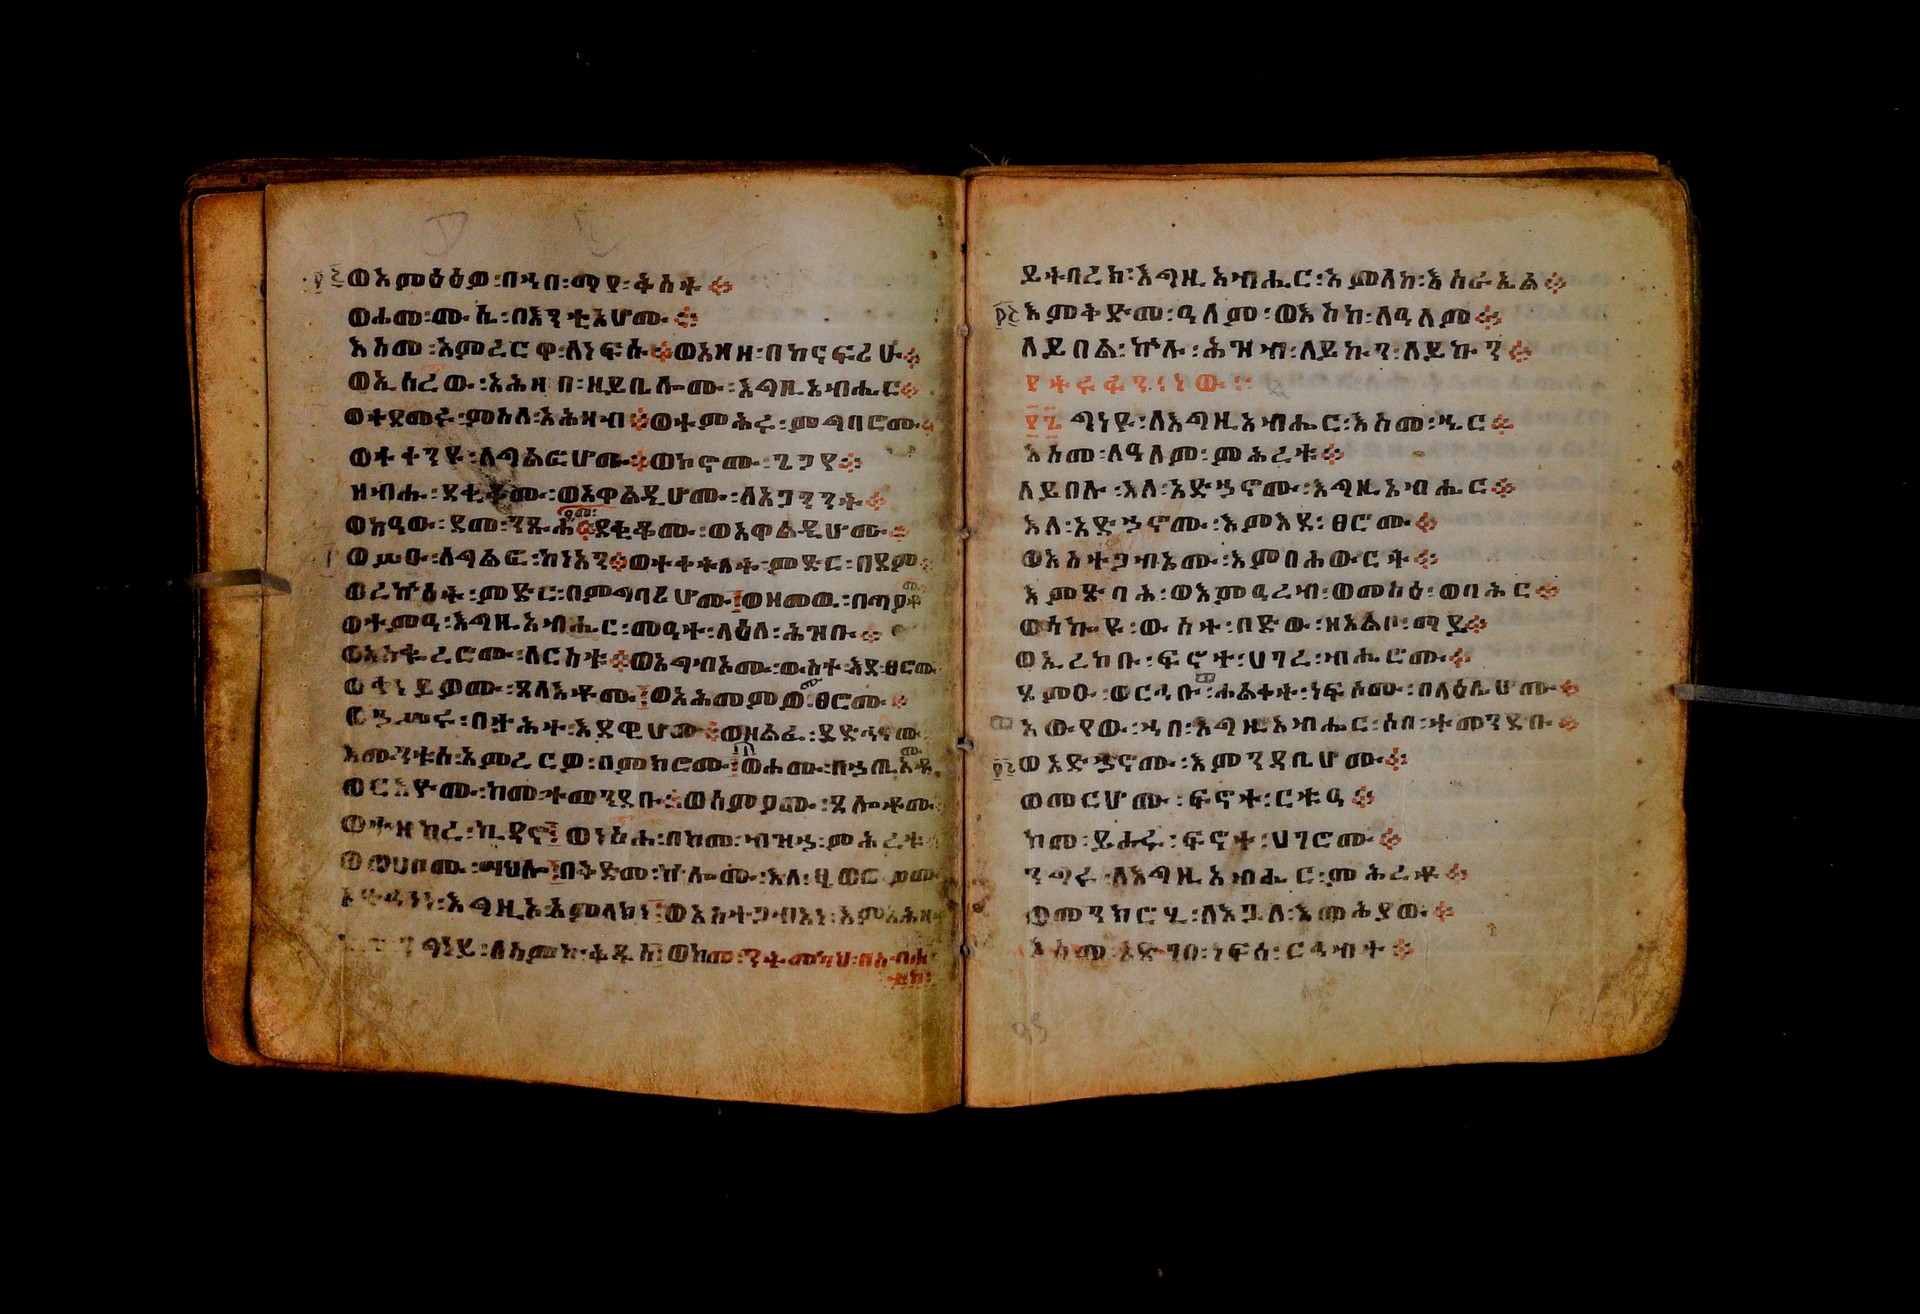 ወአምዕዕዎ፡በኀበ፡ማየ፡ቅስት።
ወሐመ፡ሙሴ፡በእንቲአሆሙ።
እስመ፡አምረርዋ፡ለነፍሱ።ወአዘዘ፡በከናፍሪሁ።
ወኢሠረው፡አሕዛበ፡ዘይቤሎሙ፡እግዚአብሔር።
ወተደመሩ፡ምስለ፡አሕዛብ።ወተምሕሩ፡ምግባሮሙ።
ወተቀንዩ፡ለግልፎሆሙ።ወኮኖሙ፡ጌጋየ።
ዘብሑ፡ደቂቆሙ፡ወአዋልዲሆሙ፡ለአጋንንት።
ወከዓው፡ደመ፡ንጹሕ።ደቂቆሙ፡ወአዋልዲሆሙ።
ወሦዑ፡ለግልፎ፡ከነአን።ወተቀትለት፡ምድር፡በደም
ወረኵሰት፡ምድር፡በምግባሪሆሙ።ወዘመዉ፡በጣዖቶሙ
ወተምዓ፡እግዚአብሔር፡መዓተ፡ላዕለ፡ሕዝቡ።
ወአስቆረርዎሙ፡ለርስቱ።ወአግብኦሙ፡ውስተ፡እደ፡ፀሮሙ
ወቀነይዎሙ፡ጸላእቶሙ።ወአሕመምዎሙ፡ፀሮሙ።
ወኀሥሩ፡በታሕተ፡እደዊሆሙ።ወዘልፈ፡ያድኅኖሙ
እሙንቱሰ፡አምረርዎ፡በምክሮሙ።ወሐሙ፡በኀጢአቶሙ
ወርእዮሙ፡ከመ፡ተመንደቡ።ወሰምዖሙ፡ጸሎቶሙ
ወተዘከረ፡ኪዳኖ።ወነስሐ፡በከመ፡ብዝኀ፡ምሕረቱ
ወወሀቦሙ፡ሣህሎ።በቅድመ፡ኵሎሙ፡እለ፡ፄወውዎሙ
አድኅነነ፡እግዚኦ፡አምላክነ።ወአስተጋብአነ፡እምአሕዛብ
ከመ፡ንግነይ፡ለስምከ፡ቅዱስ።ወከመ፡ንትመካህ፡በስብሐ
ቲከ፡
ይትባረክ፡እግዚአብሔር፡አምላከ፡እስራኤል።
እምቅድመ፡ዓለም፡ወእስከ፡ለዓለም።
ለይበል፡ኵሉ፡ሕዝብ፡ለይኩን፡ለይኩን።
የተፈሩን፡ነው፡
፻፮ ግነዩ፡ለእግዚአብሔር፡እስመ፡ኄር።
እስመ፡ለዓለም፡ምሕረቱ።
ለይበሉ፡እለ፡አድኀኖሙ፡እግዚአብሔር።
እለ፡አድኀኖሙ፡እምእደ፡ፀሮሙ።
ወአስተጋብኦሙ፡እምበሐውርት።
እምጽባሕ፡ወእምዓረብ፡ወመስዕ፡ወባሕር።
ወሳኰዩ፡ውስተ፡በድው፡ዘአልቦ፡ማየ።
ወኢረከቡ፡ፍኖተ፡ሀገረ፡ብሔሮሙ።
ጼምዑ፡ወርኅቡ፡ሐልቀት፡ነፍሶሙ፡በላዕሌሆሙ።
አውየው፡ኀበ፡እግዚአብሔር፡ሶበ፡ተመንደቡ።
ወአድኀኖሙ፡እምንዳቤሆሙ።
ወመርሆሙ፡ፍኖተ፡ርቱዓ።
ከመ፡ይሑሩ፡ፍኖተ፡ሀገሮሙ።
ንግሩ፡ለእግዚአብሔር፡ምሕረቶ።
ወመንክሮሂ፡ለእጓለ፡እመሕያው።
እስመ፡አጽገበ፡ነፍሰ፡ርኅብተ።